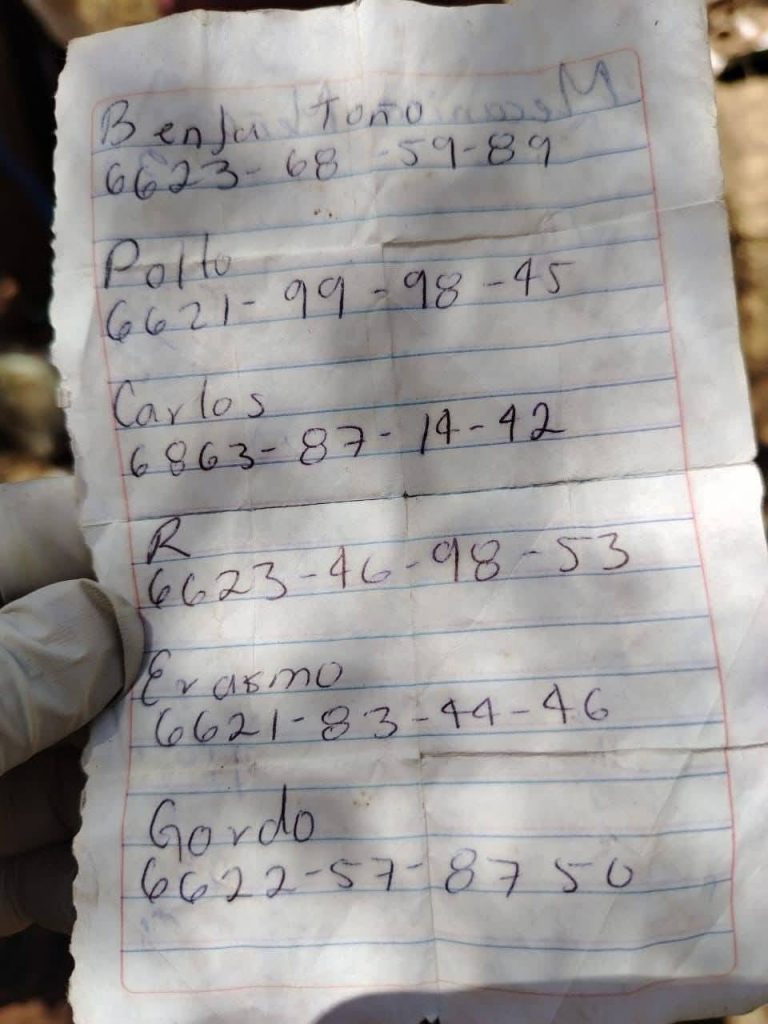 Benja toño
6623-68-59-89
Pollo
6621-99-98-45
Carlos
6863-87-14-42
R
6623-46-98-53
Erasmo
6621-83-44-46
Gordo
6622-57-87 50